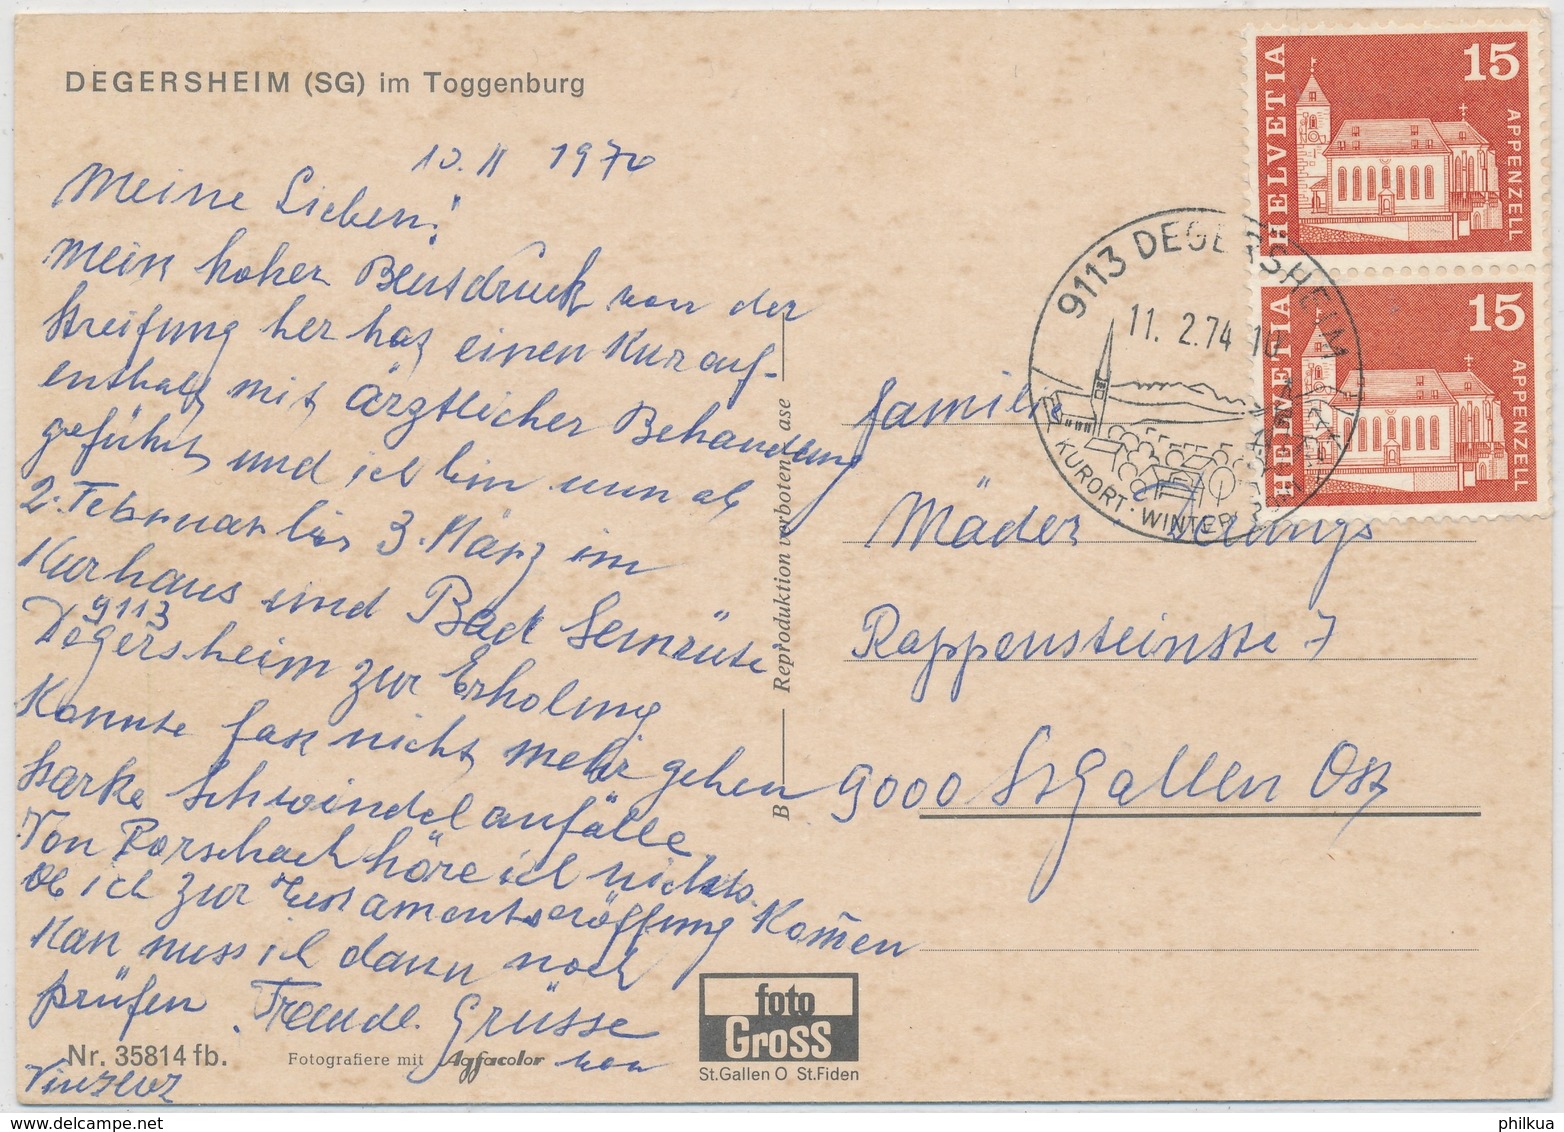 DEGERSHEIM (SG) im Toggenburg
10. II 1974
Meine Lieben!
Mein hoher Blutsdruck von der
Streifung her hat einen Kurauf-
enthalt mit ärztlicher Behandlung
geführt und ich bin nun ab
2. Februar bis 3. März im
Kurhaus und Bad Sennrüti
9113
Degersheim zur Erholung
Konnte fast nicht mehr gehen
starke Schwindelanfälle
Von Rorschach höre ich nichts.
Ob ich zur Testamentseröffnung Kom̅en
Kan muss ich dann noch
prüfen. Freundl. Grüsse
von
Vinzenz
Nr. 35814 fb.
Fotografiere mit Agfacolor
foto
Gross
St.Gallen O St.Fiden
B Reproduktion verboten ase
HELVETIA 15 APPENZELL
HELVETIA 15 APPENZELL
9113 DEGERSHEIM
11. 2.74 - 10
KURORT · WINTER
familie
Mäder
Rappensteinstr 7
9000 St Gallen Ost
philkua